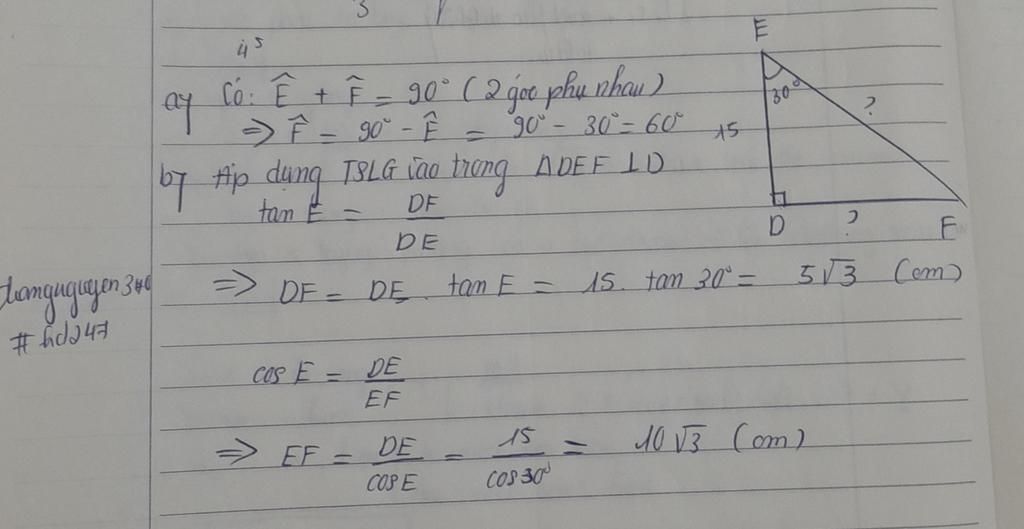 ay Có: Ê + F̂ = 90° (2 góc phụ nhau)
=> F̂ = 90° - Ê = 90° - 30° = 60°
by Áp dụng TSLG vào trong ΔDEF ⊥ D
tan E = DF / DE
=> DF = DE . tan E = 15 . tan 30° = 5√3 (cm)
cos E = DE / EF
=> EF = DE / cos E = 15 / cos 30° = 10√3 (cm)
E
30°
?
15
D
?
F
# hd247